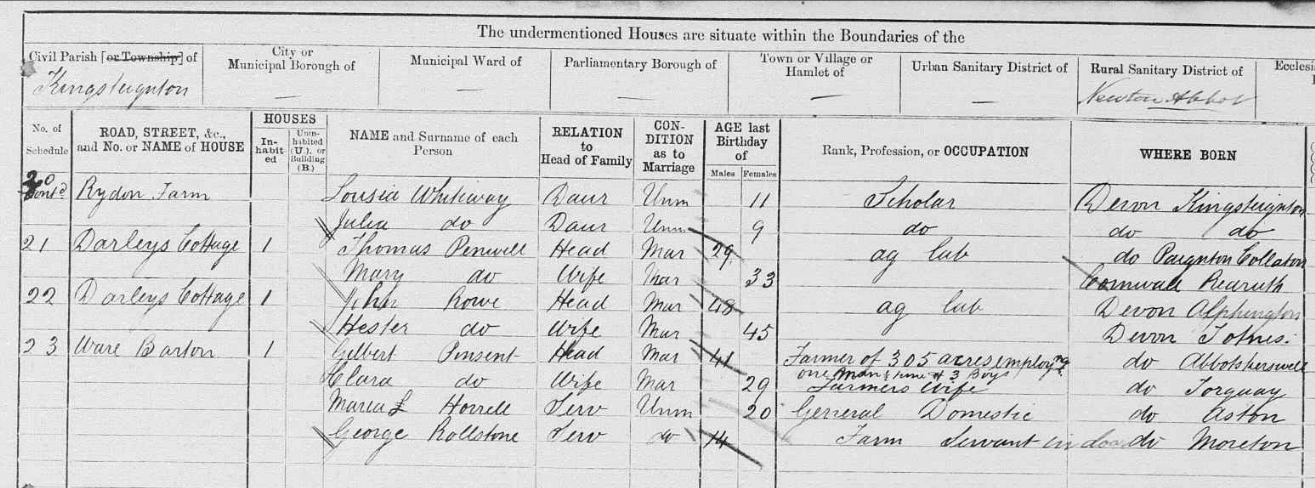 The undermentioned Houses are situate within the Boundaries of the
Civil Parish [or Township] of City or Municipal Borough of Municipal Ward of Parliamentary Borough of Town or Village or Hamlet of Urban Sanitary District of Rural Sanitary District of Ecclesi
Kingsteignton — — — — — Newton Abbot
No. of Schedule ROAD, STREET, &c., and No. or NAME of HOUSE HOUSES In-habit-ed Unin-habited (U.), or Building (B.) NAME and Surname of each Person RELATION to Head of Family CON-DITION as to Marriage AGE last Birthday of Males Females Rank, Profession, or OCCUPATION WHERE BORN
20 Contd Rydon Farm Lousia Whiteway Daur Unm 11 Scholar Devon Kingsteignton
Julia do Daur Unm 9 do do do
21 Darleys Cottage 1 Thomas Penwell Head Mar 29 ag lab do Paignton Collaton
Mary do Wife Mar 33 Cornwall Redruth
22 Darleys Cottage 1 John Rowe Head Mar 48 ag lab Devon Alphington
Hester do Wife Mar 45 Devon Totnes
23 Ware Barton 1 Gilbert Pinsent Head Mar 41 Farmer of 305 acres employing do Abbotskerswell
one man & 3 Boys
Clara do Wife Mar 29 Farmers Wife do Torquay
Maria L Horrell Serv Unm 20 General Domestic do Aston
George Rollstone Serv do 14 Farm Servant in door do Moreton